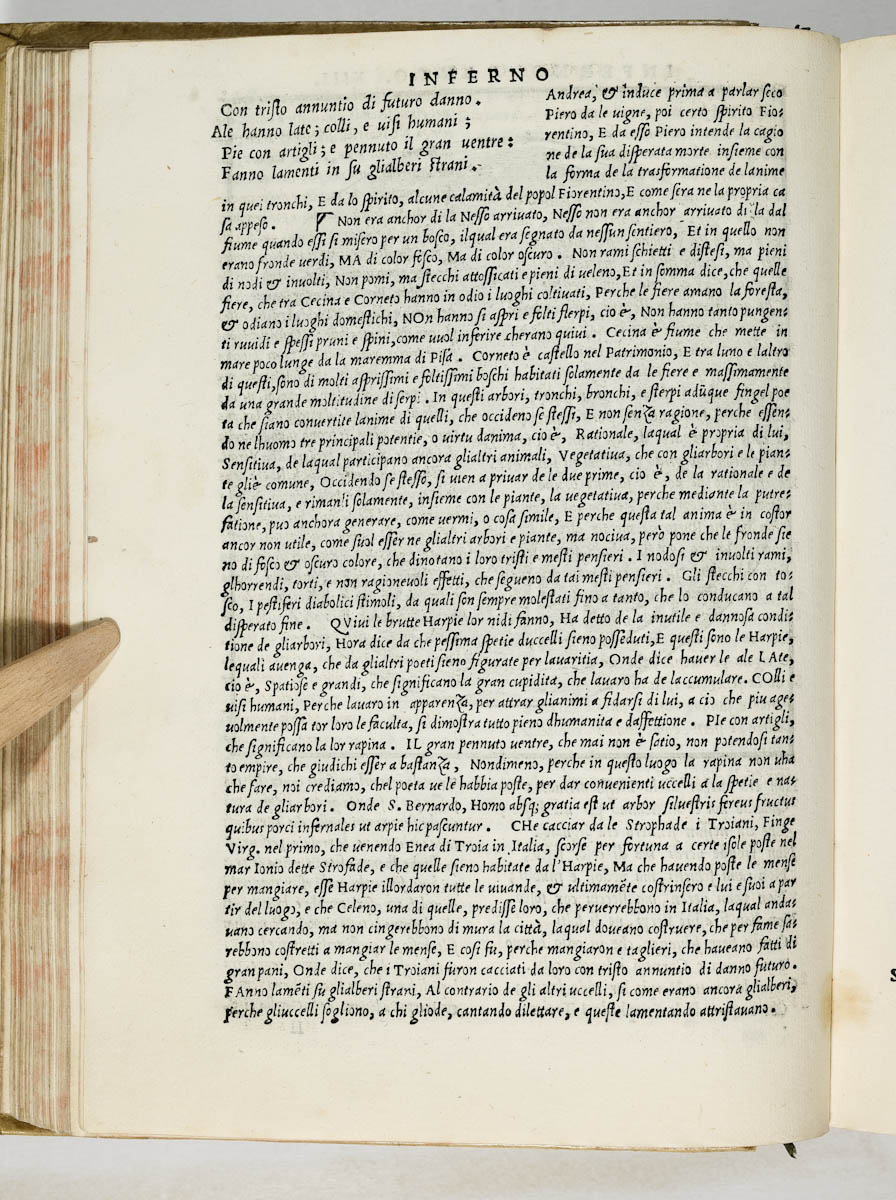 INFERNO
Con tristo annuntio di futuro danno.
Ale hanno late; colli, e uisi humani;
Pie con artigli; e pennuto il gran uentre:
Fanno lamenti in su glialberi strani.
Andrea, & induce prima a parlar seco
Piero da le uigne, poi certo spirito Fio-
rentino, E da esso Piero intende la cagio
ne de la sua disperata morte insieme con
la forma de la trasformatione de lanime
in quei tronchi, E da lo spirito, alcune calamità del popol Fiorentino, E come sera ne la propria ca
sa appeso. Non era anchor di la Nesso arriuato, Nesso non era anchor arriuato di la dal
fiume quando essi si misero per un bosco, ilqual era segnato da nessun sentiero, Et in quello non
erano fronde uerdi, MA di color fosco, Ma di color oscuro. Non rami schietti e distesi, ma pieni
di nodi & inuolti, Non pomi, ma stecchi attossicati e pieni di ueleno, Et in somma dice, che quelle
fiere, che tra Cecina e Corneto hanno in odio i luoghi coltiuati, Perche le fiere amano la foresta,
& odiano i luoghi domestichi, NOn hanno si aspri e folti sterpi, cio è, Non hanno tanto pungen-
ti ruuidi e spessi pruni e spini, come uuol inferire cherano quiui. Cecina è fiume che mette in
mare poco lunge da la maremma di Pisa. Corneto è castello nel Patrimonio, E tra luno e laltro
di questi, sono di molti asprissimi e foltissimi boschi habitati solamente da le fiere e massimamente
da una grande moltitudine di serpi. In questi arbori, tronchi, bronchi, e sterpi adũque fingel poe
ta che siano conuertite lanime di quelli, che occideno se stessi, E non senza ragione, perche essen-
do ne lhuomo tre principali potentie, o uirtu danima, cio è, Rationale, laqual è propria di lui,
Sensitiua, de laqual participano ancora glialtri animali, Vegetatiua, che con gliarbori e le pian-
te gliè comune, Occidendo se stesso, si uien a priuar de le due prime, cio è, de la rationale e de
la sensitiua, e rimanli solamente, insieme con le piante, la uegetatiua, perche mediante la putre-
fatione, puo anchora generare, come uermi, o cosa simile, E perche questa tal anima è in costor
ancor non utile, come suol esser ne glialtri arbori e piante, ma nociua, però pone che le fronde sie
no di fosco & oscuro colore, che dinotano i loro tristi e mesti pensieri. I nodosi & inuolti rami,
glhorrendi, torti, e non ragioneuoli effetti, che segueno da tai mesti pensieri. Gli stecchi con to-
sco, I pestiferi diabolici stimoli, da quali son sempre molestati fino a tanto, che lo conducano a tal
disperato fine. QViui le brutte Harpie lor nidi fanno, Ha detto de la inutile e dannosa condi-
tione de gliarbori, Hora dice da che pessima spetie duccelli sieno posseduti, E questi sono le Harpie,
lequali auenga, che da glialtri poeti sieno figurate per lauaritia, Onde dice hauer le ale LAte,
cio è, Spatiose e grandi, che significano la gran cupidita, che lauaro ha de laccumulare. COlli e
uisi humani, Perche lauaro in apparenza, per attrar glianimi a fidarsi di lui, a cio che piu age-
uolmente possa tor loro le faculta, si dimostra tutto pieno dhumanita e daffettione. PIe con artigli,
che significano la lor rapina. IL gran pennuto uentre, che mai non è satio, non potendosi tan-
to empire, che giudichi esser a bastanza, Nondimeno, perche in questo luogo la rapina non uha
che fare, noi crediamo, chel poeta ue le habbia poste, per dar conuenienti uccelli a la spetie e na-
tura de gliarbori. Onde S. Bernardo, Homo absq; gratia est ut arbor siluestris fereus fructus
quibus porci infernales ut arpie hic pascuntur. CHe cacciar da le Strophade i Troiani, Finge
Virg. nel primo, che uenendo Enea di Troia in Italia, scorse per fortuna a certe isole poste nel
mar Ionio dette Strofade, e che quelle sieno habitate da l'Harpie, Ma che hauendo poste le mense
per mangiare, esse Harpie illordaron tutte le uiuande, & ultimamẽte costrinsero e lui e suoi a par
tir del luogo, e che Celeno, una di quelle, predisse loro, che peruerrebbono in Italia, laqual anda-
uano cercando, ma non cingerebbono di mura la città, laqual doueano costruere, che per fame sa-
rebbono costretti a mangiar le mense, E cosi fu, perche mangiaron e taglieri, che haueano fatti di
gran pani, Onde dice, che i Troiani furon cacciati da loro con tristo annuntio di danno futuro.
FAnno lamẽti su glialberi strani, Al contrario de gli altri uccelli, si come erano ancora glialberi,
perche gliuccelli sogliono, a chi gliode, cantando dilettare, e queste lamentando attristauano.